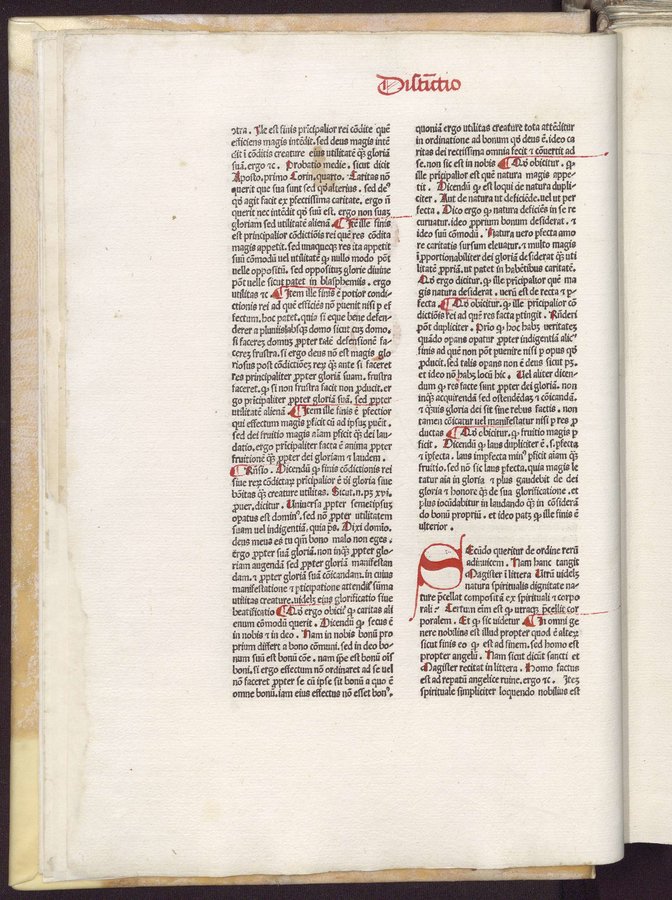 Distictio
ꝯtra. Ille est finis prĩcipalior rei cõdite quẽ
efficiens magis intẽdit. sed deus magis intẽ
dit ĩ cõditis creature eius utilitatẽ qʒ gloriã
suã. ergo ⁊c. Probatio medie. sicut dicit
Aposto. primo Corin. quarto. Caritas nõ
querit que sua sunt sed qđ alterius. sed de⁹
qđ agit facit ex pfectissima caritate. ergo ñ
querit nec intẽdit qđ suũ est. ergo non suaʒ
gloriam sed utilitatẽ alienã. Ite ille finis
est principalior cõdictiõis rei quẽ res cõdita
magis appetit. sed unaqueqʒ res ita appetit
suũ cõmodũ uel utilitatẽ ꝙ nullo modo põt
uelle oppositũ. sed oppositũ glorie diuine
põt uelle sicut patet in blasphemiis. ergo
utilitas ⁊c. Item ille finis ẽ potior condi-
ctionis rei ad quẽ efficiẽs nõ puenit nisi p ef
fectum. hoc patet. quia si eque bene defen-
derer a pluuiis absqʒ domo sicut cuʒ domo.
si facereʒ domuʒ ꝓpter talẽ defensionẽ fa-
cereʒ frustra. si ergo deus nõ est magis glo
riosus post cõdictiões reʀ qʒ ante si faceret
res principaliter ꝓpter gloriam suam. frustra
faceret. ꝙ si non frustra facit non ꝓducit. er
go prĩcipaliter ꝓpter gloriã suã. sed ꝓpter
utilitatẽ alienã. Item ille finis ẽ pfectior
qui effectum magis pficit cũ ad ipsuʒ puẽit.
sed dei fruitio magis aĩam pficit qʒ dei lau-
datio. ergo prĩcipaliter facta ẽ anima ꝓpter
fruitionẽ qʒ ꝓpter dei gloriam et laudem.
Rñsio. Dicendũ ꝙ finis cõdictionis rei
siue reʀ cõdictaʀ prĩcipalior ẽ dĩ gloria siue
bõitas qʒ creature utilitas. Sicut. n. pʒ xvi.
puer. dicitur. Uniuersa ꝓpter semetipsuʒ
opatus est domin⁹. sed nõ ꝓpter utilitatem
suam uel indigentiã. quia ps. Dixi domĩo.
deus meus es tu qm̃ bono malo non eges.
ergo ꝓpter suã gloriã. non inqʒ ꝓpter glo-
riam augendã sed ꝓpter gloriã manifestan
dam. ⁊ ꝓpter gloriã suã cõicandam. in cuius
manifestatione ⁊ pticipatione attendit̃ sũma
utilitas creature. uidelʒ eius glorificatio siue
beatificatio. Qđ ergo obicit̃ ꝙ caritas ali
enum cõmodũ querit. Dicendũ ꝙ secus ẽ
in nobis ⁊ in deo. Nam in nobis bonũ pro
prium differt a bono cõmuni. sed in deo bo-
num suũ est bonũ cõe. nam ipe est bonũ oĩs
boni. si ergo effectum nõ ordinaret ad se uel
nõ faceret ꝓpter se cũ ipse sit bonũ a quo ẽ
omne bonũ. iam eius effectus nõ esset bon⁹.
quoniã ergo utilitas creature tota attẽditur
in ordinatione ad bonum qđ deus ẽ. ideo ca
ritas dei rectissima omnia fecit ⁊ cõuertit ad
se. non sic est in nobis. Qđ obicitur. ꝙ
ille prĩcipalior est quẽ natura magis appe-
tit. Dicendũ ꝙ est loqui de natura dupli-
citer. Aut de natura ut deficiẽde. uel ut per
fecta. Dico ergo ꝙ natura deficiẽs in se re
curuatur. ideo ꝓprium bonum desiderat. ⁊
ideo suũ cõmodũ. Natura uero pfecta amo
re caritatis sursum eleuatur. ⁊ multo magis
ĩ pportionabiliter dei gloriã desiderat qʒ uti
litatẽ ꝓpriã. ut patet in habẽtibus caritatẽ.
Qđ ergo dicitur. ꝙ ille prĩcipalior quẽ ma
gis natura desiderat. uerũ est de recta ⁊ p-
fecta. Qđ obicitur. ꝙ ille prĩcipalior cõ
dictiõis rei ad quẽ res facta ptingit. Rñderi
põt dupliciter. Prĩo ꝙ hoc habʒ ueritateʒ
quãdo opans opatur ꝓpter indigentiã alic⁹
finis ad quẽ non põt puenire nisi p opus qđ
ꝓducit. sed talis opans non ẽ deus sicut pʒ.
et ideo nõ habʒ locũ hic. Uel aliter dicen-
dum ꝙ res facte sunt ꝓpter dei gloriã. non
inqʒ acquirendã sed ostendẽdaʒ ⁊ cõicandã.
⁊ qʒuis gloria dei sit sine rebus factis. non
tamen cõicatur uel manifestatur nisi p res ꝓ
ductas. Qđ obicitur. ꝙ fruitio magis p
ficit. Dicendũ ꝙ laus dupliciter ẽ. s. pfecta
⁊ ĩpfecta. laus impfecta min⁹ pficit aĩam qʒ
fruitio. sed nõ sic laus pfecta. quia magis le
tatur aĩa in gloria ⁊ plus gaudebit de dei
gloria ⁊ honore qʒ de sua glorificatione. et
plus iocũdabitur in laudando qʒ in cõsiderã
do bonũ propriũ. et ideo patʒ ꝙ ille finis ẽ
ulterior.
Secũdo queritur de ordine rerũ
adinuicem. Nam hanc tangit
Magister ĩ littera. Utrũ uidelʒ
natura spiritualis dignitate na-
ture pcellat compositũ ex spirituali ⁊ corpo
rali ⁊ Certum eĩm est ꝙ utraqʒ pcellit cor
poralem. Et ꝙ sic uidetur. In omni ge
nere nobilius est illud propter quod ẽ alteʀ
sicut finis eo ꝙ est ad finem. sed homo est
propter angelũ. Nam sicut dicũt sancti et
Magister recitat in littera. Homo factus
est ad repatũ angelice ruine. ergo ⁊c. Iteʒ
spirituale simpliciter loquendo nobilius est